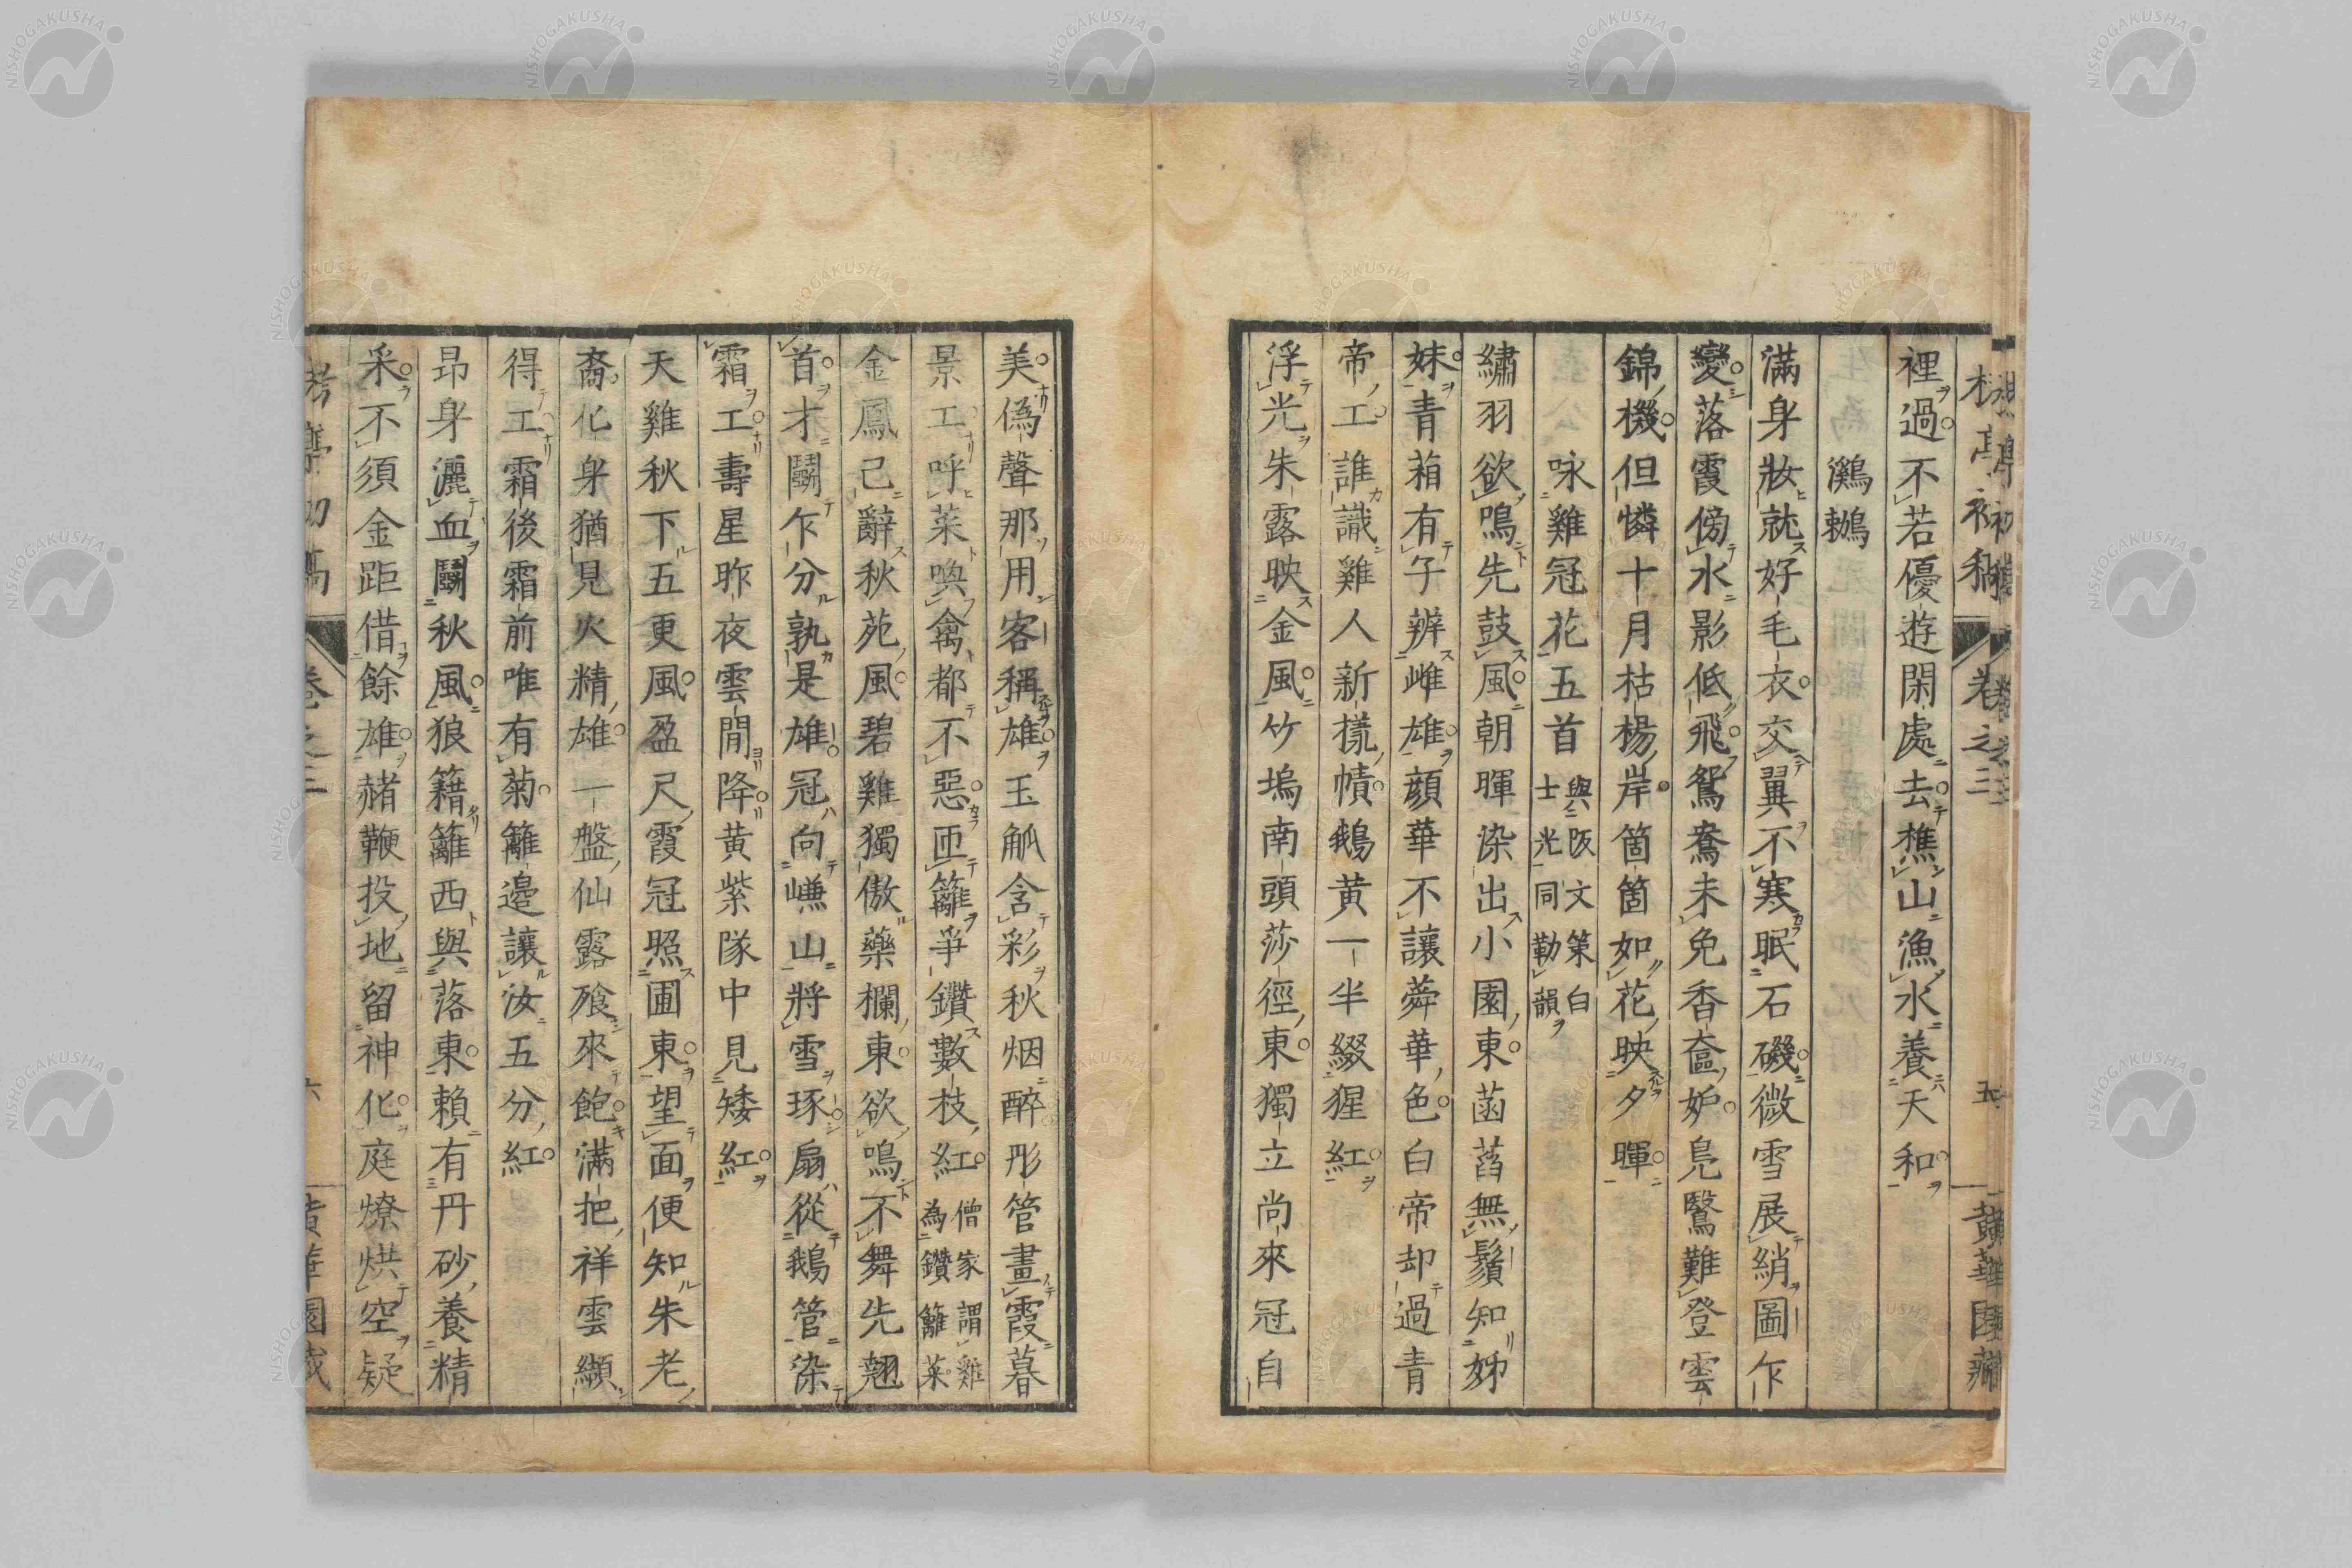 裡過不若優遊閑處去樵山漁水養天和
鸂鶒
滿身妝就好毛衣交翼不寒眠石磯微雪展綃圖乍
變落霞傍水影低飛鴛鴦未免香奩妒鳧鷖難登雲
錦機但憐十月枯楊岸箇箇如花映夕暉
咏雞冠花五首與阪文策白士光同勒韻
繡羽欲鳴先鼓風朝暉染出小園東菡萏無鬚知姊
妹青葙有子辨雌雄顔華不讓蕣華色白帝却過青
帝工誰識雞人新様幘鵝黄一半綴猩紅
浮光朱露映金風竹塢南頭莎徑東獨立尚來冠自
卷之三
五
黄華園藏
美偽聲那用客稱雄玉觚含彩秋烟醉彤管畫霞暮
景工呼菜喚禽都不惡匝籬爭鑽數枝紅僧家謂雞為鑽籬菜
金鳳己辭秋苑風碧雞獨傲藥欄東欲鳴不舞先翹
首才鬪乍分孰是雄冠向嵰山將雪琢扇從鵝管染
霜工壽星昨夜雲間降黄紫隊中見矮紅
天雞秋下五更風盈尺霞冠照圃東望面便知朱老
裔化身猶見火精雄一盤仙露飧來飽滿把祥雲纈
得工霜後霜前唯有菊籬邊讓汝五分紅
昂身灑血鬪秋風狼籍籬西與落東賴有丹砂養精
采不須金距借餘雄赭鞭投地留神化庭燎烘空疑
卷之三
六
黄華園藏